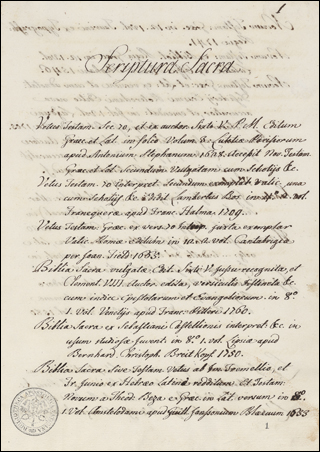 1
Scriptura Sacra
Vetus Testam. Sec. 70, et ex auctor. Sixti V. P. M. Editum
Græc. et Lat. in folio Volum. 3. Lutetiæ Parisiorum
apud Antonium Stephanum 1628. Accessit Nov. Testam.
Græc. et Lat. Secundum Vulgatam cum Scholijs &c.
Vetus Testam. 70 Interpret. Secundum exemplar Vatic. una
cum Scholijs &c. edidit Lambertus Bos in vol.
Franequeræ apud Franc. Halma. 1709.
Vetus Testam. Græc. ex vers. 70 Interp. juxta exemplar
Vatic. Romæ editum in 10. vol. Cantabrigiæ
per Joan. Field 1653.
Biblia Sacra vulgatæ Edit. Sixti V. jussu recognita, et
Clement. VIII. auctor. edita, versiculis distincta &c.
cum indice Epistolarum et Evangeliorum, in 8.º
1. Vol. Venetijs apud Franc. Pitteri 1760.
Biblia Sacra ex Sebastiani Castellionis interpret. &c. in
usum studiosæ Juvent. in 8.º 1. vol. Lipsiæ apud
Bernhard. Christoph. Breitkopf. 1750.
Biblia Sacra Sive Testam. Vetus ab Im. Tremellio, et
Fr. Junio ex Hebræo Latinè redditum et Testam.
Novum a Theod. Beza e Græc. in Lat. versum in
1. Vol. Amstelodami apud Guill. Janssonium Blaeuum 1633
1